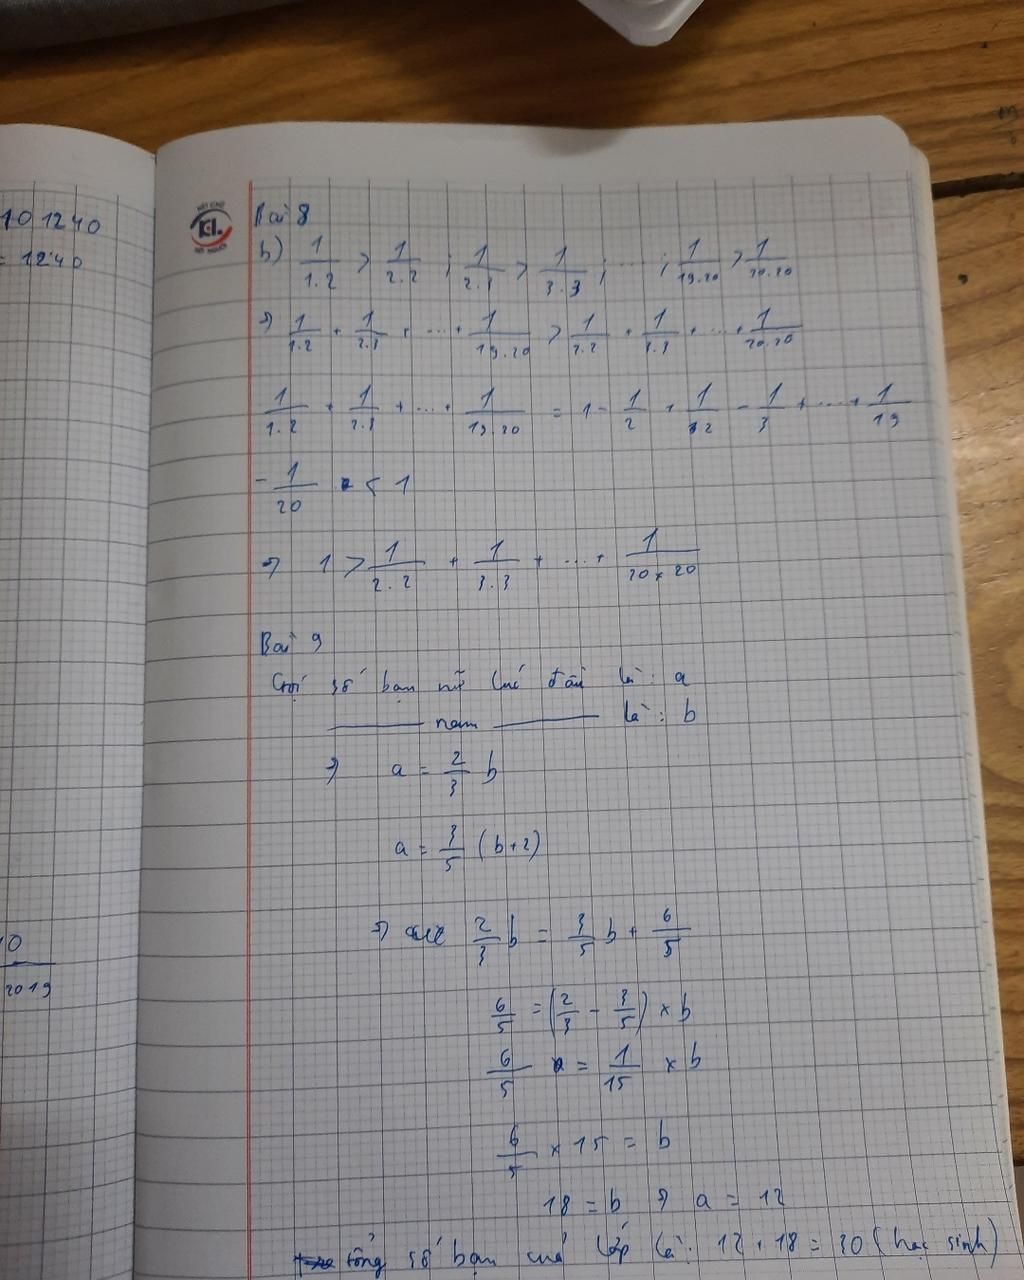 10 1240
= 1240
10
2019
Bài 8
b) 1/1.2 > 1/2.2 ; 1/2.3 > 1/3.3 ; ... ; 1/19.20 > 1/20.20
⇒ 1/1.2 + 1/2.3 + ... + 1/19.20 > 1/2.2 + 1/3.3 + ... + 1/20.20
1/1.2 + 1/2.3 + ... + 1/19.20 = 1 - 1/2 + 1/2 - 1/3 + ... + 1/19
- 1/20 < 1
⇒ 1 > 1/2.2 + 1/3.3 + ... + 1/20×20
Bài 9
Gọi số bạn nữ lúc đầu là : a
nam là : b
⇒ a = 2/3 b
a = 3/5 (b+2)
⇒ 2/3 b = 3/5 b + 6/5
6/5 = (2/3 - 3/5) × b
6/5 = 1/15 × b
6/5 × 15 = b
18 = b ⇒ a = 12
tổng số bạn của lớp là: 12 + 18 = 30 (học sinh)